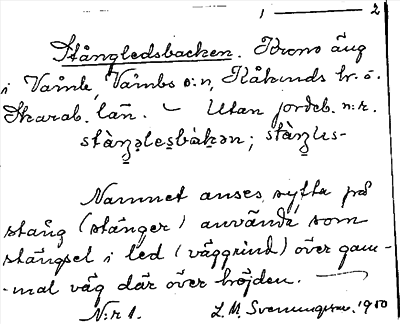 1 — 2
Stångledsbacken. Krono äng
i Våmb, Våmbs s:n, Kåkinds hr. o.
Skarab. län. – Utan jordeb. n:r.
Namnet anses syfta på
stång (stänger) använda som
stängsel i led (väggrind) över gam-
-mal väg där över höjden. —
N:r 1. L. M. Svenungsson. 1910